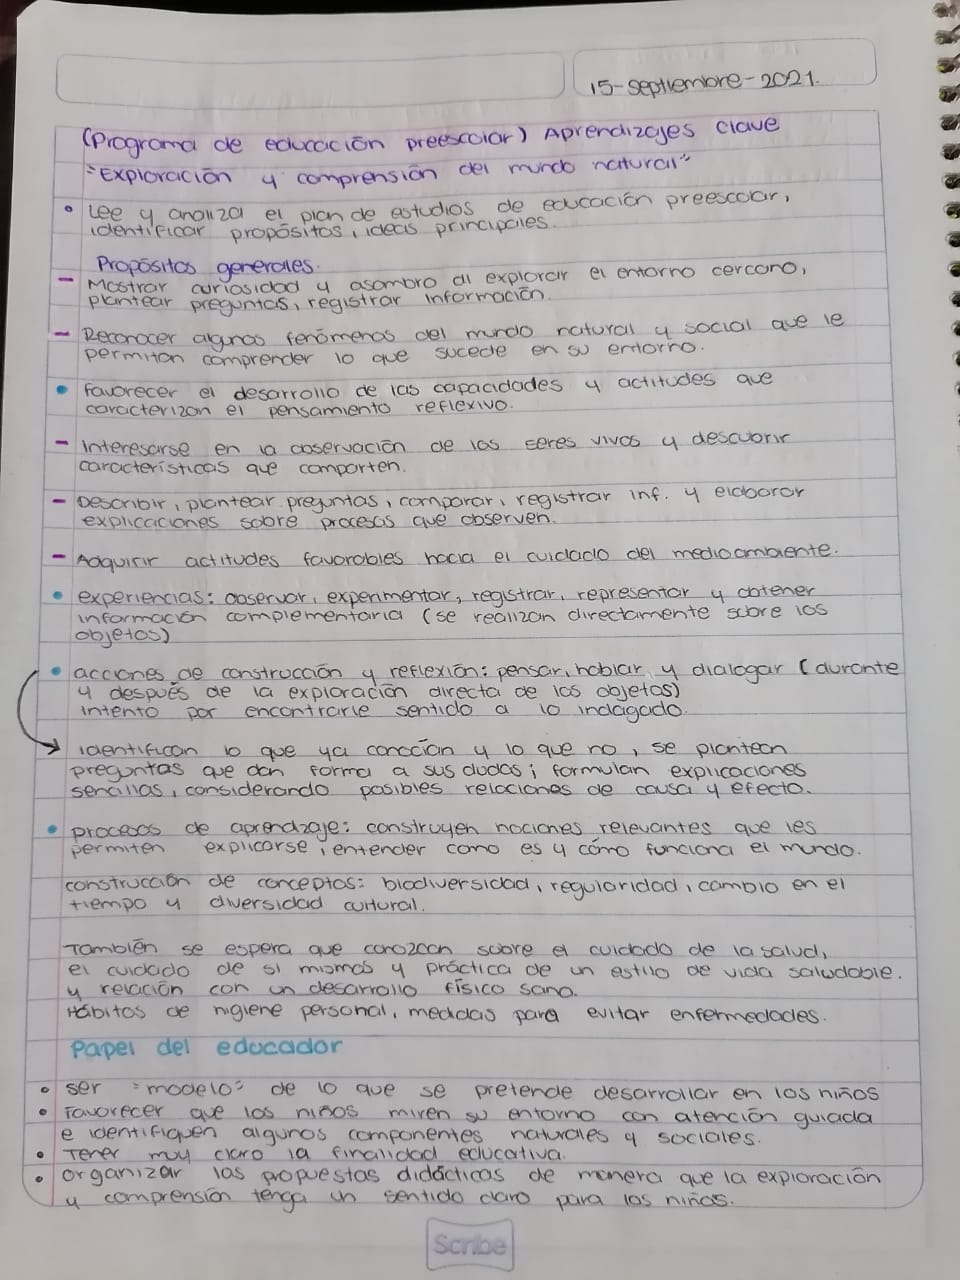 15-septiembre-2021.
(Programa de educación preescolar) Aprendizajes clave
"Exploración y comprensión del mundo natural"
• Lee y analiza el plan de estudios de educación preescolar,
identificar propósitos, ideas principales.
Propósitos generales.
- Mostrar curiosidad y asombro al explorar el entorno cercano,
plantear preguntas, registrar información.
- Reconocer algunos fenómenos del mundo natural y social que le
permitan comprender lo que sucede en su entorno.
• Favorecer el desarrollo de las capacidades y actitudes que
caracterizan el pensamiento reflexivo.
- Interesarse en la observación de los seres vivos y descubrir
características que comparten.
- Describir, plantear preguntas, comparar, registrar inf. y elaborar
explicaciones sobre procesos que observen.
- Adquirir actitudes favorables hacia el cuidado del medioambiente.
• experiencias: observar, experimentar, registrar, representar y obtener
información complementaria (se realizan directamente sobre los
objetos)
• acciones de construcción y reflexión: pensar, hablar y dialogar (durante
y después de la exploración directa de los objetos)
Intento por encontrarle sentido a lo indagado.
→ Identifican lo que ya conocían y lo que no, se plantean
preguntas que dan forma a sus dudas; formulan explicaciones
sencillas, considerando posibles relaciones de causa y efecto.
• procesos de aprendizaje: construyen nociones relevantes que les
permiten explicarse, entender como es y cómo funciona el mundo.
construcción de conceptos: biodiversidad, regularidad, cambio en el
tiempo y diversidad cultural.
También se espera que conozcan sobre el cuidado de la salud,
el cuidado de si mismos y práctica de un estilo de vida saludable.
y relación con un desarrollo físico sano.
Hábitos de higiene personal, medidas para evitar enfermedades.
Papel del educador
• ser "modelo" de lo que se pretende desarrollar en los niños
• Favorecer que los niños miren su entorno con atención guiada
e identifiquen algunos componentes naturales y sociales.
• Tener muy claro la finalidad educativa.
• organizar las propuestas didácticas de manera que la exploración
y comprensión tenga un sentido claro para los niños.
Scribe